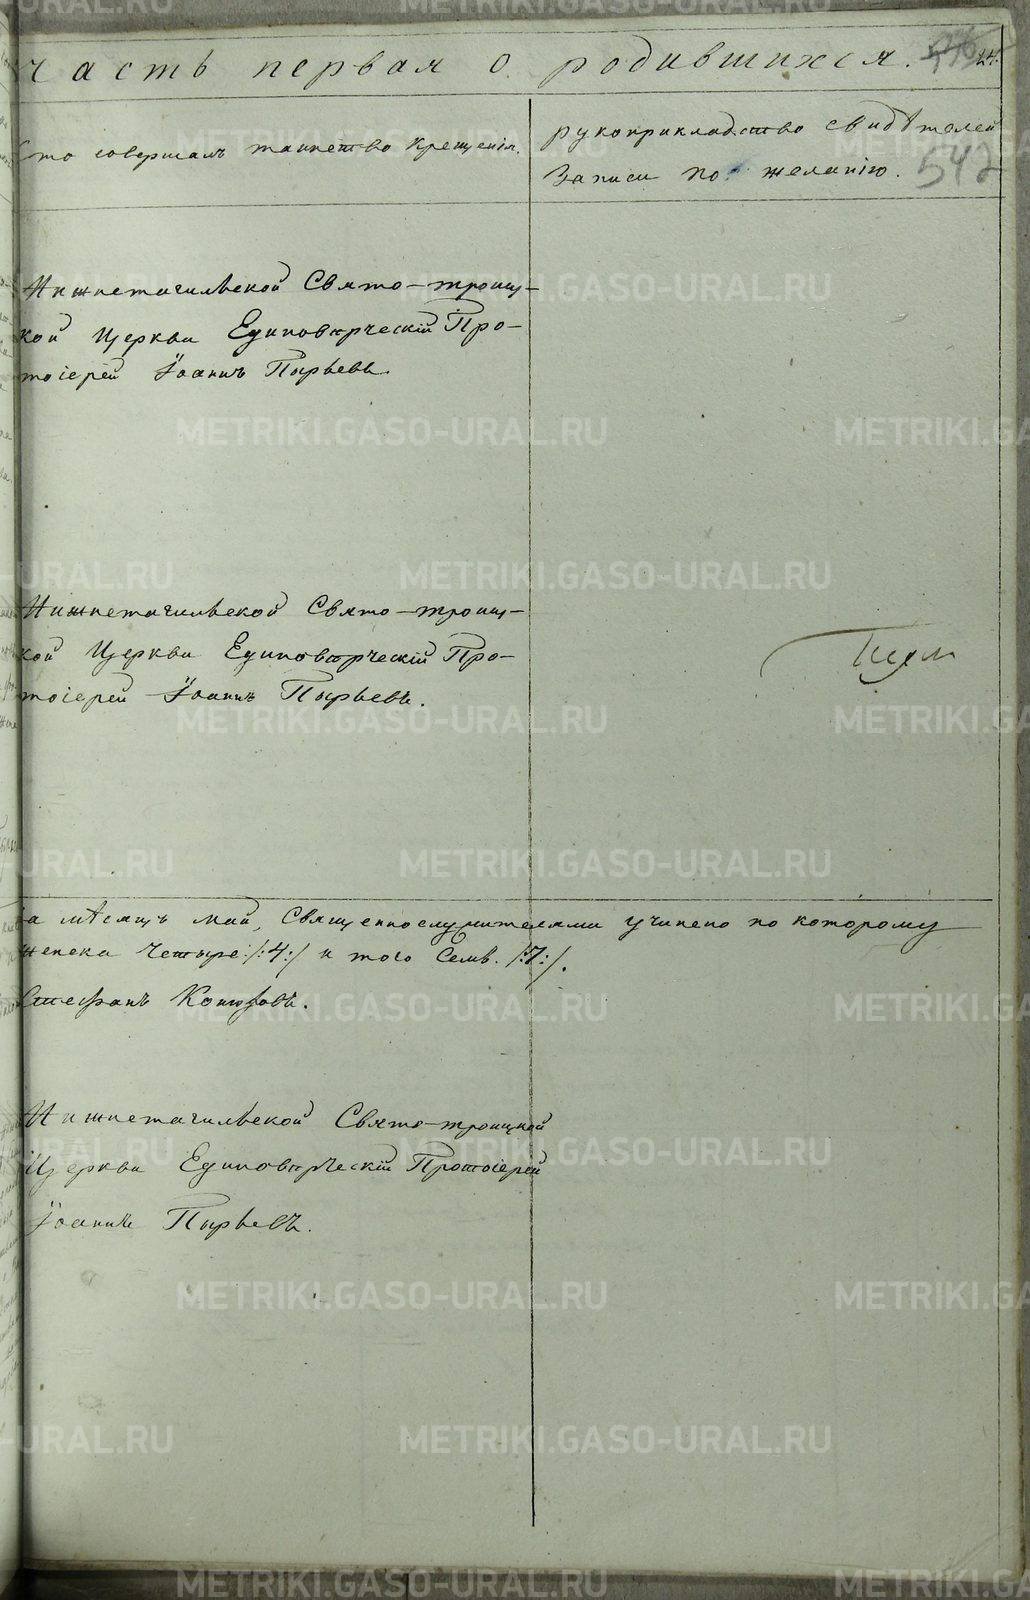 Часть первая о родившихся.
542
Кто совершалъ таинство крещенія.
рукоприкладство свидѣтелей
записи по желанію.
Нижнетагильской Свято-троиц-
кой Церкви Единовѣрческій Про-
тоіерей Іоаннъ Пырьевъ.
Нижнетагильской Свято-троиц-
кой Церкви Единовѣрческій Про-
тоіерей Іоаннъ Пырьевъ.
за мѣсяцъ май, Священнослужителями учинено по которому
женска четыре /:4:/ и того Семь. /:7:/.
Стефанъ
Нижнетагильской Свято-троицкой
Церкви Единовѣрческій Протоіерей
Іоаннъ Пырьевъ.
METRIKI.GASO-URAL.RU